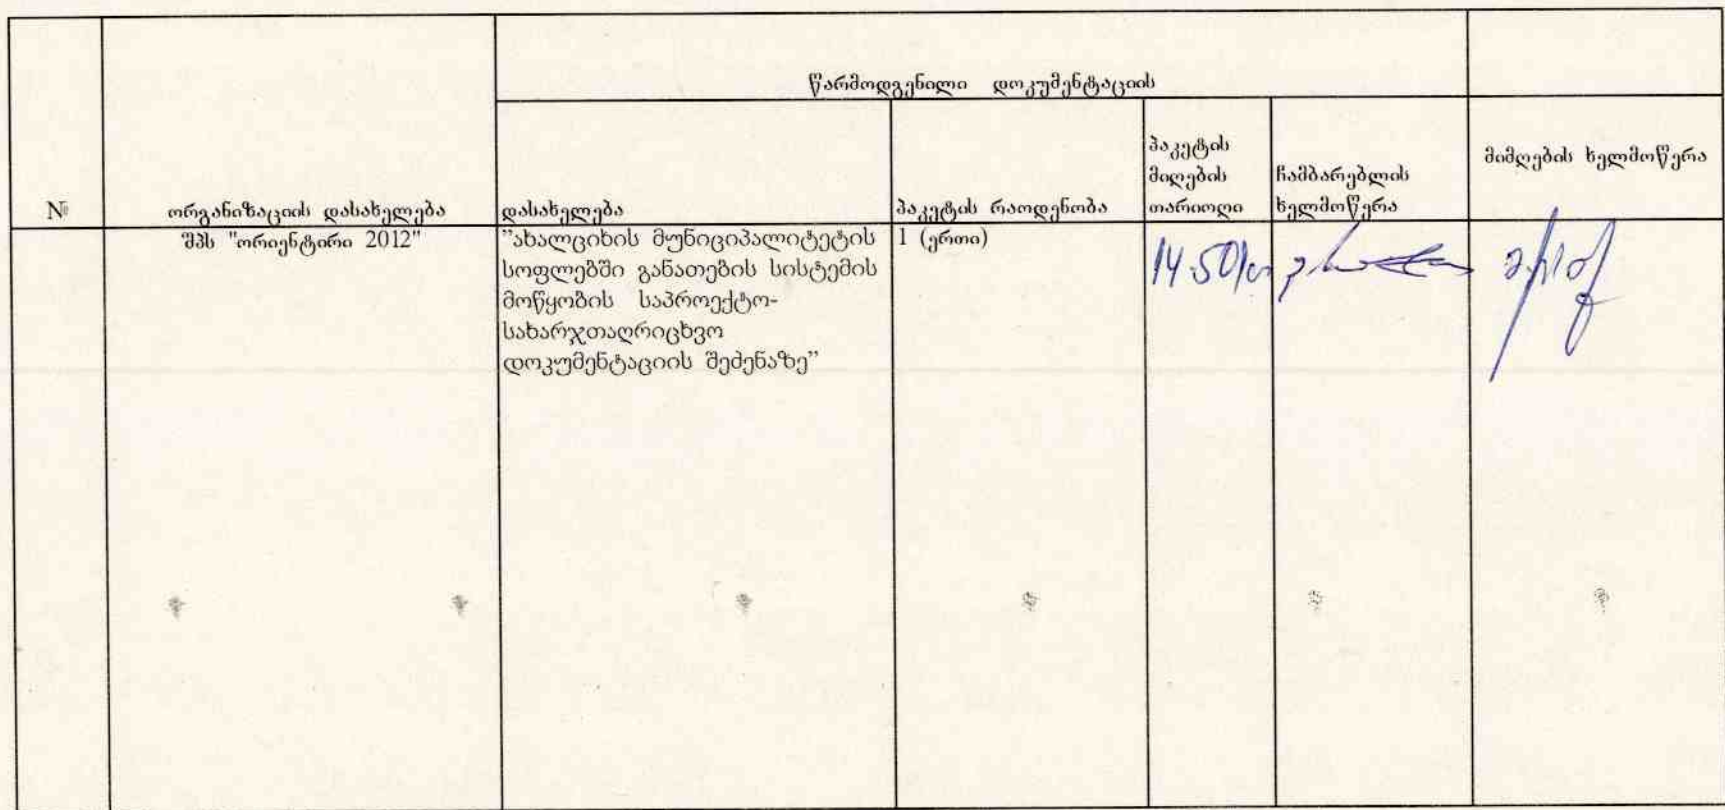 წარმოდგენილი დოკუმენტაციის
№
ორგანიზაციის დასახელება
დასახელება
პაკეტის რაოდენობა
პაკეტის
მიღების
თარიოღი
ჩამბარებლის
ხელმოწერა
მიმღების ხელმოწერა
შპს "ორიენტირი 2012"
”ახალციხის მუნიციპალიტეტის
სოფლებში განათების სისტემის
მოწყობის საპროექტო-
სახარჯთაღრიცხვო
დოკუმენტაციის შეძენაზე”
1 (ერთი)